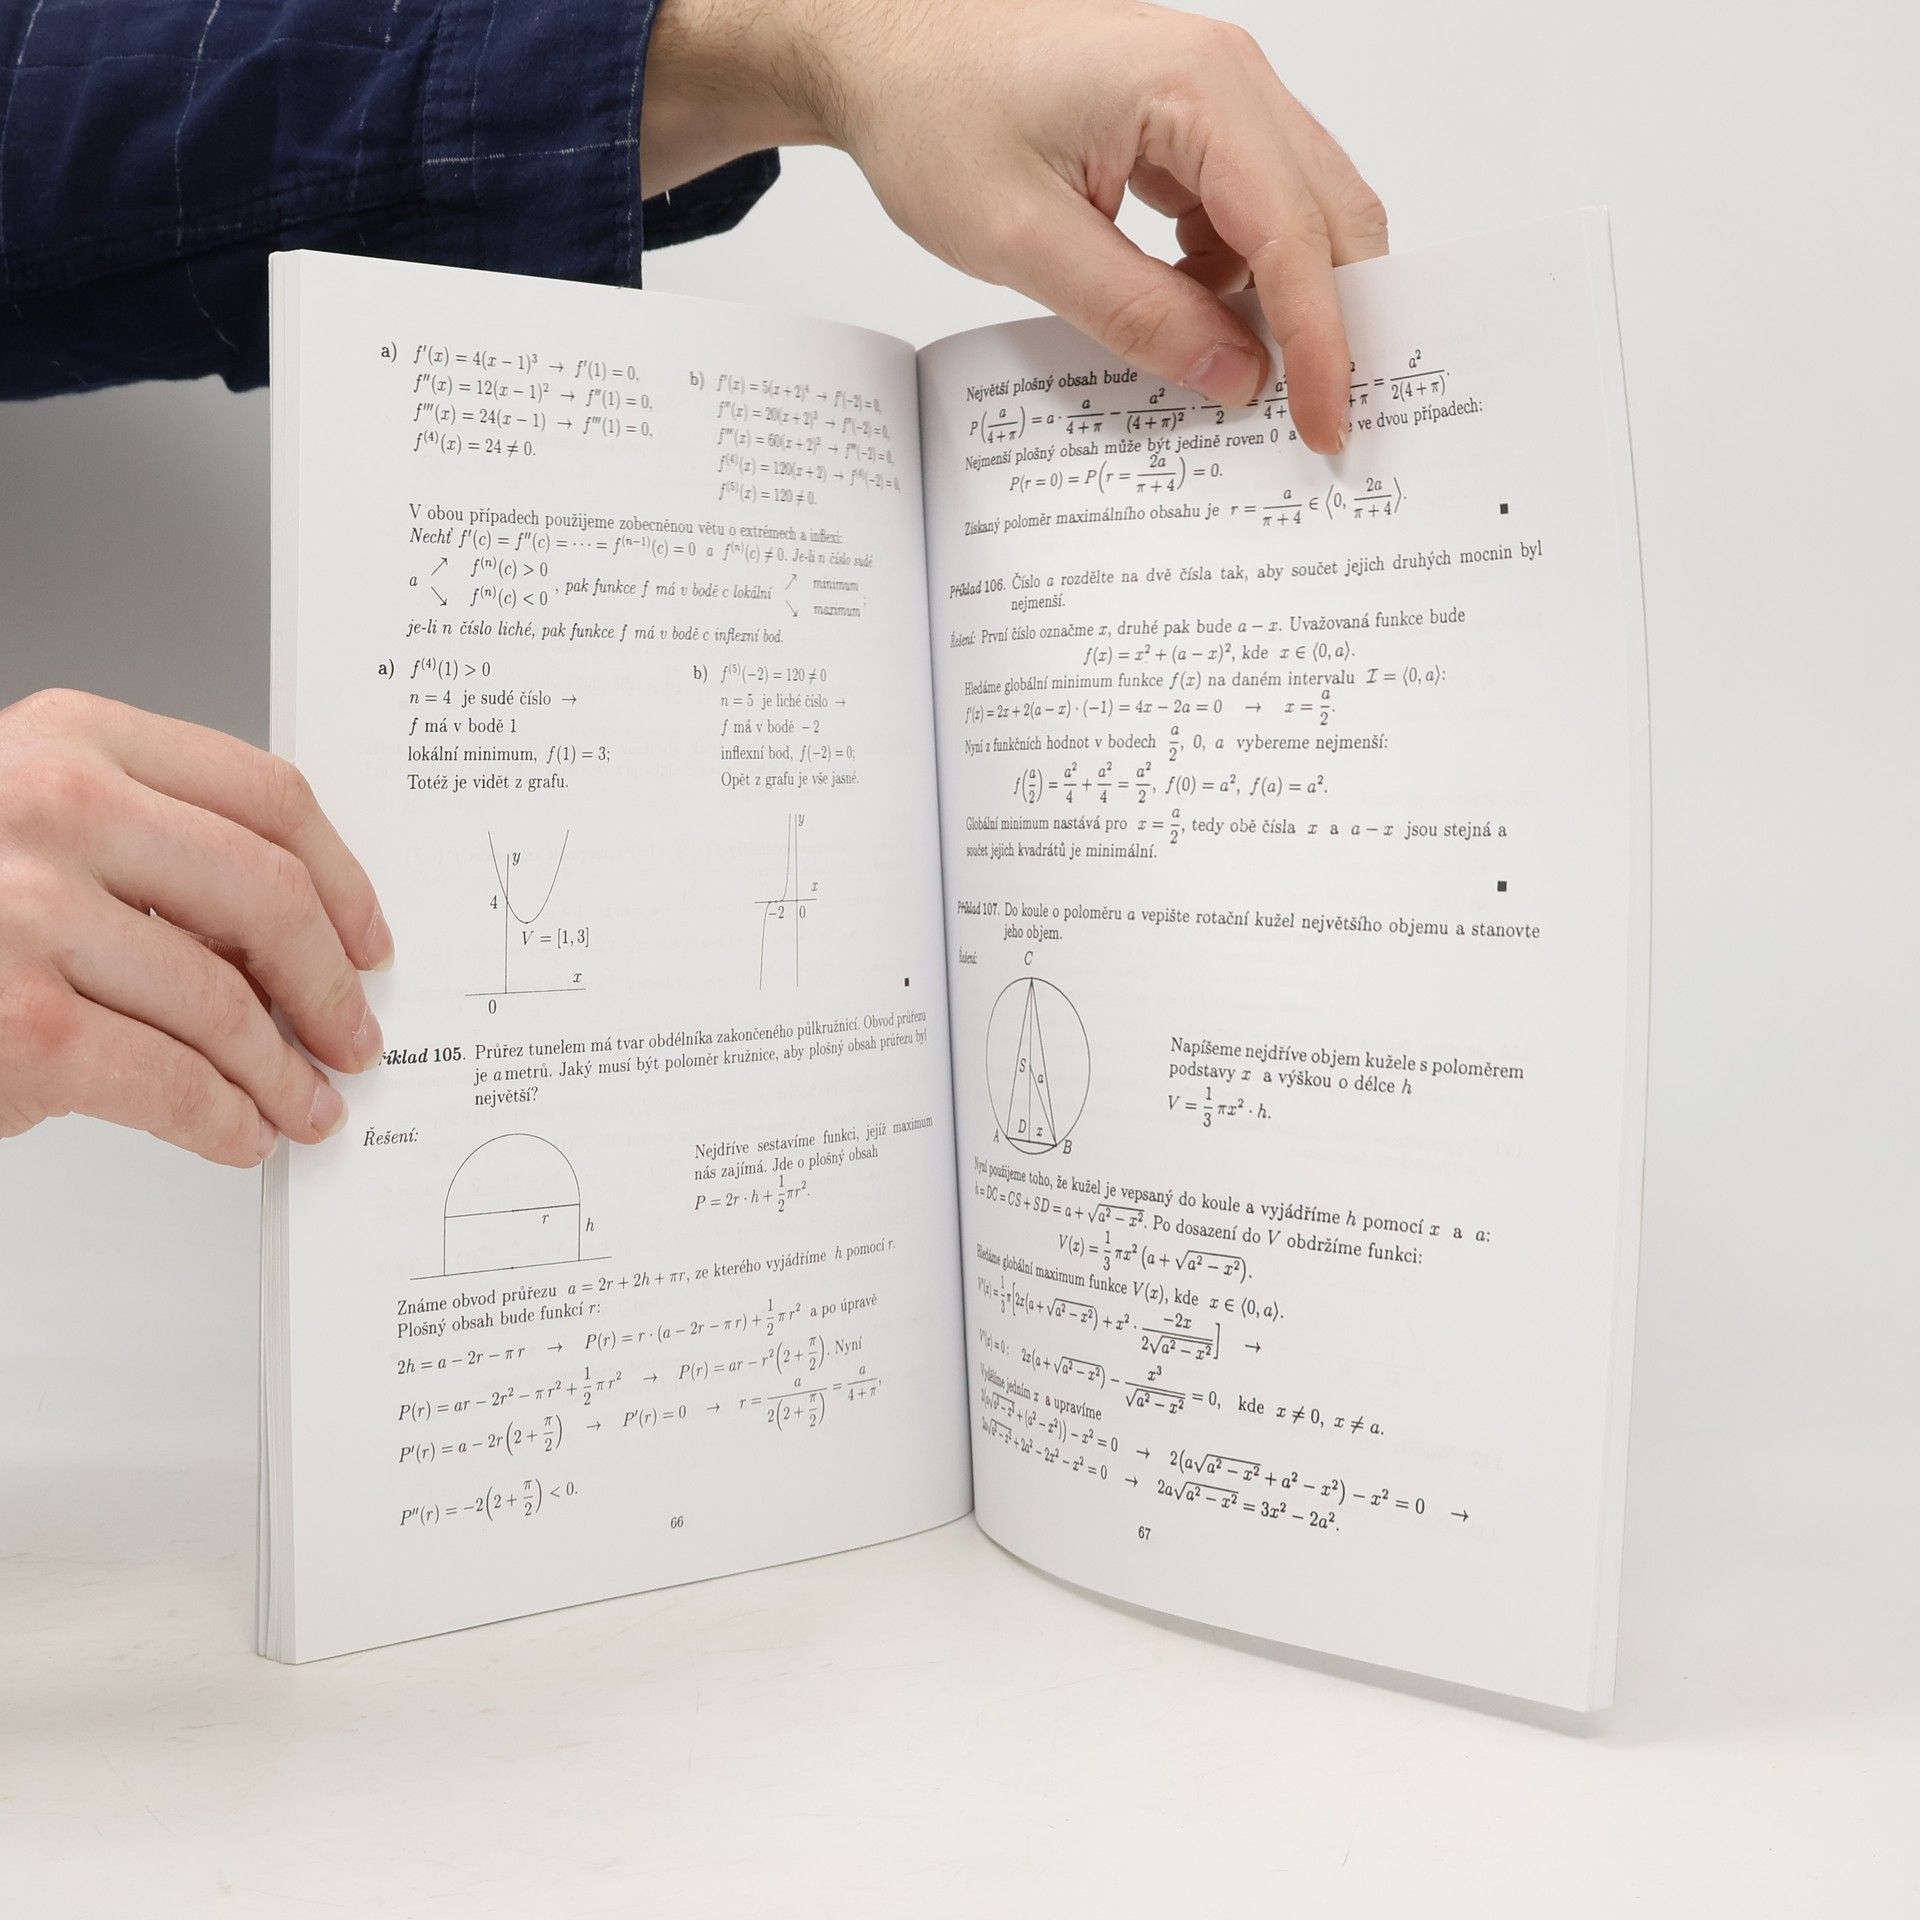 a) f′(x) = 4(x − 1)³ → f′(1) = 0,
f″(x) = 12(x − 1)² → f″(1) = 0,
f‴(x) = 24(x − 1) → f‴(1) = 0,
f⁽⁴⁾(x) = 24 ≠ 0.
b) f′(x) = 5(x + 2)⁴ → f′(−2) = 0,
f″(x) = 20(x + 2)³ → f″(−2) = 0,
f‴(x) = 60(x + 2)² → f‴(−2) = 0,
f⁽⁴⁾(x) = 120(x + 2) → f⁽⁴⁾(−2) = 0,
f⁽⁵⁾(x) = 120 ≠ 0.
V obou případech použijeme zobecněnou větu o extrémech a inflexi:
Nechť f′(c) = f″(c) = · · · = f⁽ⁿ⁻¹⁾(c) = 0 a f⁽ⁿ⁾(c) ≠ 0. Je-li n číslo sudé
↗ f⁽ⁿ⁾(c) > 0 ↗ minimum
a , pak funkce f má v bodě c lokální ;
↘ f⁽ⁿ⁾(c) < 0 ↘ maximum
je-li n číslo liché, pak funkce f má v bodě c inflexní bod.
a) f⁽⁴⁾(1) > 0
n = 4 je sudé číslo →
f má v bodě 1
lokální minimum, f(1) = 3;
Totéž je vidět z grafu.
b) f⁽⁵⁾(−2) = 120 ≠ 0
n = 5 je liché číslo →
f má v bodě −2
inflexní bod, f(−2) = 0;
Opět z grafu je vše jasné.
y
4
V = [1, 3]
x
0
y
x
−2 0
íklad 105. Průřez tunelem má tvar obdélníka zakončeného půlkružnicí. Obvod průřezu
je a metrů. Jaký musí být poloměr kružnice, aby plošný obsah průřezu byl
největší?
Řešení:
r
h
Nejdříve sestavíme funkci, jejíž maximum
nás zajímá. Jde o plošný obsah
P = 2r · h + 1/2 πr².
Známe obvod průřezu a = 2r + 2h + πr, ze kterého vyjádříme h pomocí r.
Plošný obsah bude funkcí r:
2h = a − 2r − π r → P(r) = r · (a − 2r − π r) + 1/2 π r² a po úpravě
P(r) = ar − 2r² − π r² + 1/2 π r² → P(r) = ar − r²(2 + π/2). Nyní
P′(r) = a − 2r(2 + π/2) → P′(r) = 0 → r = a/(2(2 + π/2)) = a/(4 + π),
P″(r) = −2(2 + π/2) < 0.
66
Největší plošný obsah bude
P(a/(4 + π)) = a · a/(4 + π) − a²/(4 + π)² · 2 = a² 4+ +π = a²/(2(4 + π)).
Nejmenší plošný obsah může být jedině roven 0 a ve dvou případech:
P(r = 0) = P(r = 2a/(π + 4)) = 0.
Získaný poloměr maximálního obsahu je r = a/(π + 4) ∈ ⟨0, 2a/(π + 4)⟩.
Příklad 106. Číslo a rozdělte na dvě čísla tak, aby součet jejich druhých mocnin byl
nejmenší.
Řešení: První číslo označme x, druhé pak bude a − x. Uvažovaná funkce bude
f(x) = x² + (a − x)², kde x ∈ ⟨0, a⟩.
Hledáme globální minimum funkce f(x) na daném intervalu I = ⟨0, a⟩:
f′(x) = 2x + 2(a − x) · (−1) = 4x − 2a = 0 → x = a/2.
Nyní z funkčních hodnot v bodech a/2, 0, a vybereme nejmenší:
f(a/2) = a²/4 + a²/4 = a²/2, f(0) = a², f(a) = a².
Globální minimum nastává pro x = a/2, tedy obě čísla x a a − x jsou stejná a
součet jejich kvadrátů je minimální.
Příklad 107. Do koule o poloměru a vepište rotační kužel největšího objemu a stanovte
jeho objem.
Řešení:
C
S
a
D x
A
B
Napíšeme nejdříve objem kužele s poloměrem
podstavy x a výškou o délce h
V = 1/3 πx² · h.
Nyní použijeme toho, že kužel je vepsaný do koule a vyjádříme h pomocí x a a:
h = DC = CS + SD = a + √(a² − x²). Po dosazení do V obdržíme funkci:
V(x) = 1/3 πx² (a + √(a² − x²)).
Hledáme globální maximum funkce V(x), kde x ∈ ⟨0, a⟩.
V′(x) = 1/3 π[2x(a + √(a² − x²)) + x² · −2x/(2√(a² − x²))] →
V′(x) = 0: 2x(a + √(a² − x²)) − x³/√(a² − x²) = 0, kde x ≠ 0, x ≠ a.
Vydělíme jedním x a upravíme
2(a√(a² − x²) + (a² − x²)) − x² = 0 → 2(a√(a² − x²) + a² − x²) − x² = 0 →
2a√(a² − x²) + 2a² − 2x² − x² = 0 → 2a√(a² − x²) = 3x² − 2a².
67